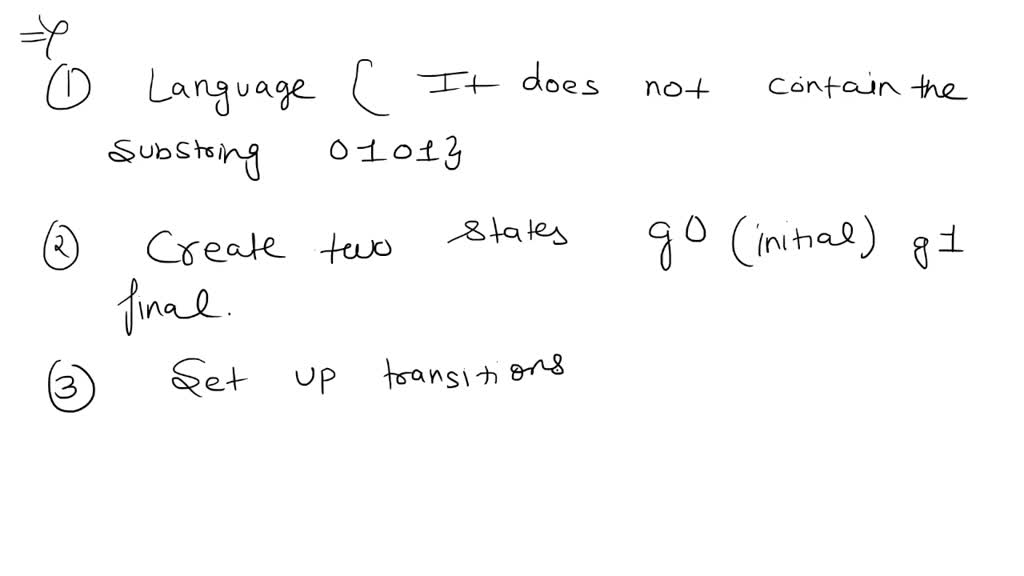 ⇒
① Language { It does not contain the
substring 0101}
② Create two states q0 (initial) q1
final.
③ Set up transitions